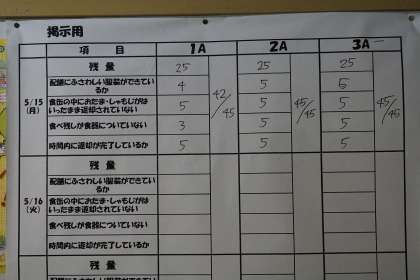 掲示用
項 目 1A 2A 3A
残 量 25 25 25
配膳にふさわしい服装ができているか 4 5 5
5/15(月) 食缶の中におたま・しゃもじがはいったまま返却されていない 5 42/45 5 45/45 5 45/45
食べ残しが食器についていない 3 5 5
時間内に返却が完了しているか 5 5 5
残 量
配膳にふさわしい服装ができているか
5/16(火) 食缶の中におたま・しゃもじがはいったまま返却されていない
食べ残しが食器についていない
時間内に返却が完了しているか
残 量